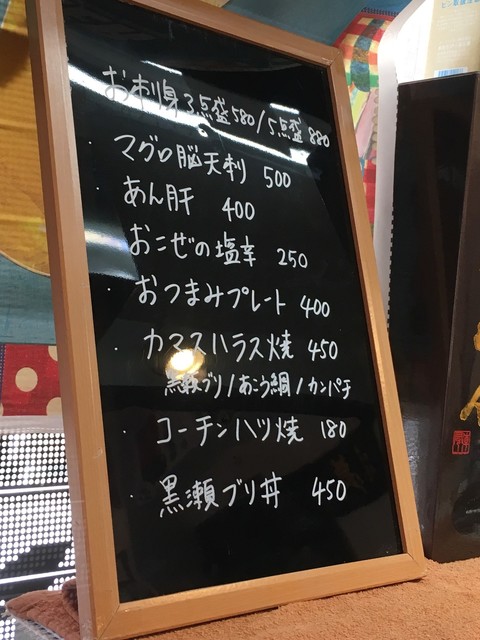 お刺身3点盛580/5点盛880
・マグロ脳天刺 500
・あん肝 400
・おこぜの塩辛 250
・おつまみプレート 400
・カマスハラス焼 450
黒瀬ブリ/あこう鯛/カンパチ
・コーチンハツ焼 180
・黒瀬ブリ丼 450